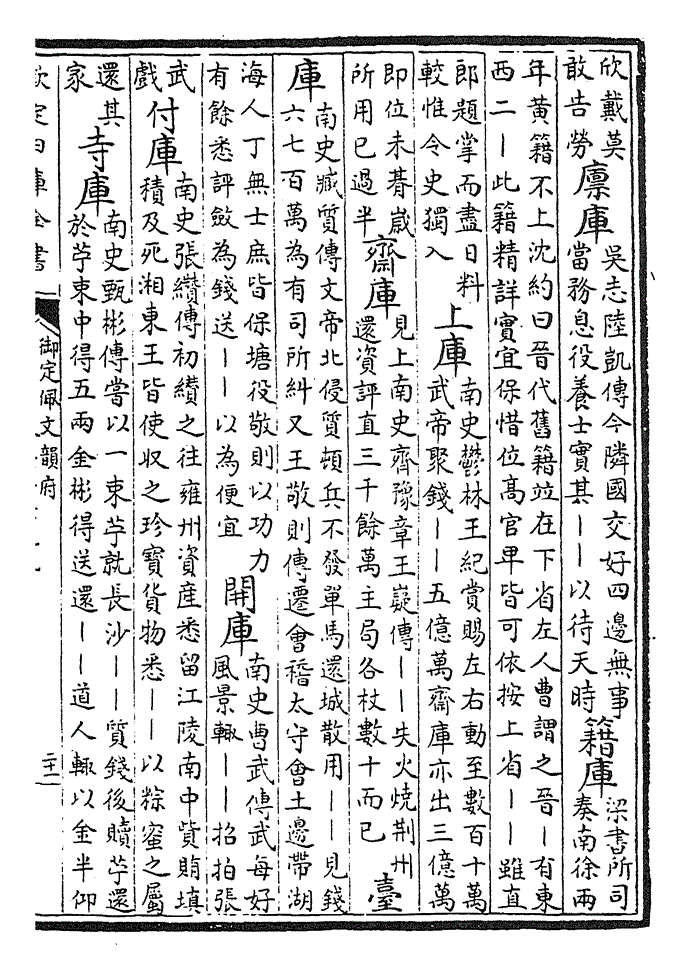 欣戴莫
敢告勞
廩庫
吳志陸凱傳今隣國交好四邊無事
當務息役養士實其丨丨以待天時
籍庫
梁書所司
奏南徐兩
年黃籍不上沈約曰晉代舊籍竝在下省左人曹謂之晉丨有東
西二丨此籍精詳實宜保惜位髙官卑皆可依按上省丨丨雖直
郎題掌而盡日料
較惟令史獨入
上庫
南史鬱林王紀賞賜左右動至數百十萬
武帝聚錢丨丨五億萬齋庫亦出三億萬
即位未朞歲
所用已過半
齋庫
見上南史齊豫章王嶷傳丨丨失火燒荆州
還資評直三千餘萬主局各杖數十而已
臺
庫
南史臧質傳文帝北侵質頓兵不發單馬還城散用丨丨見錢
六七百萬為有司所糾又王敬則傳遷會稽太守會土邊帶湖
海人丁無士庶皆保塘役敬則以功力
有餘悉評斂為錢送丨丨以為便宜
開庫
南史曹武傳武每好
風景輙丨丨招拍張
武
戲
付庫
南史張纘傳初纘之往雍州資産悉留江陵南中貲賄填
積及死湘東王皆使収之珍寶貨物悉丨丨以粽蜜之屬
還其
家
寺庫
南史甄彬傳嘗以一束苧就長沙丨丨質錢後贖苧還
於苧束中得五兩金彬得送還丨丨道人輙以金半仰
欽定四庫全書
御定佩文韻府
二十二